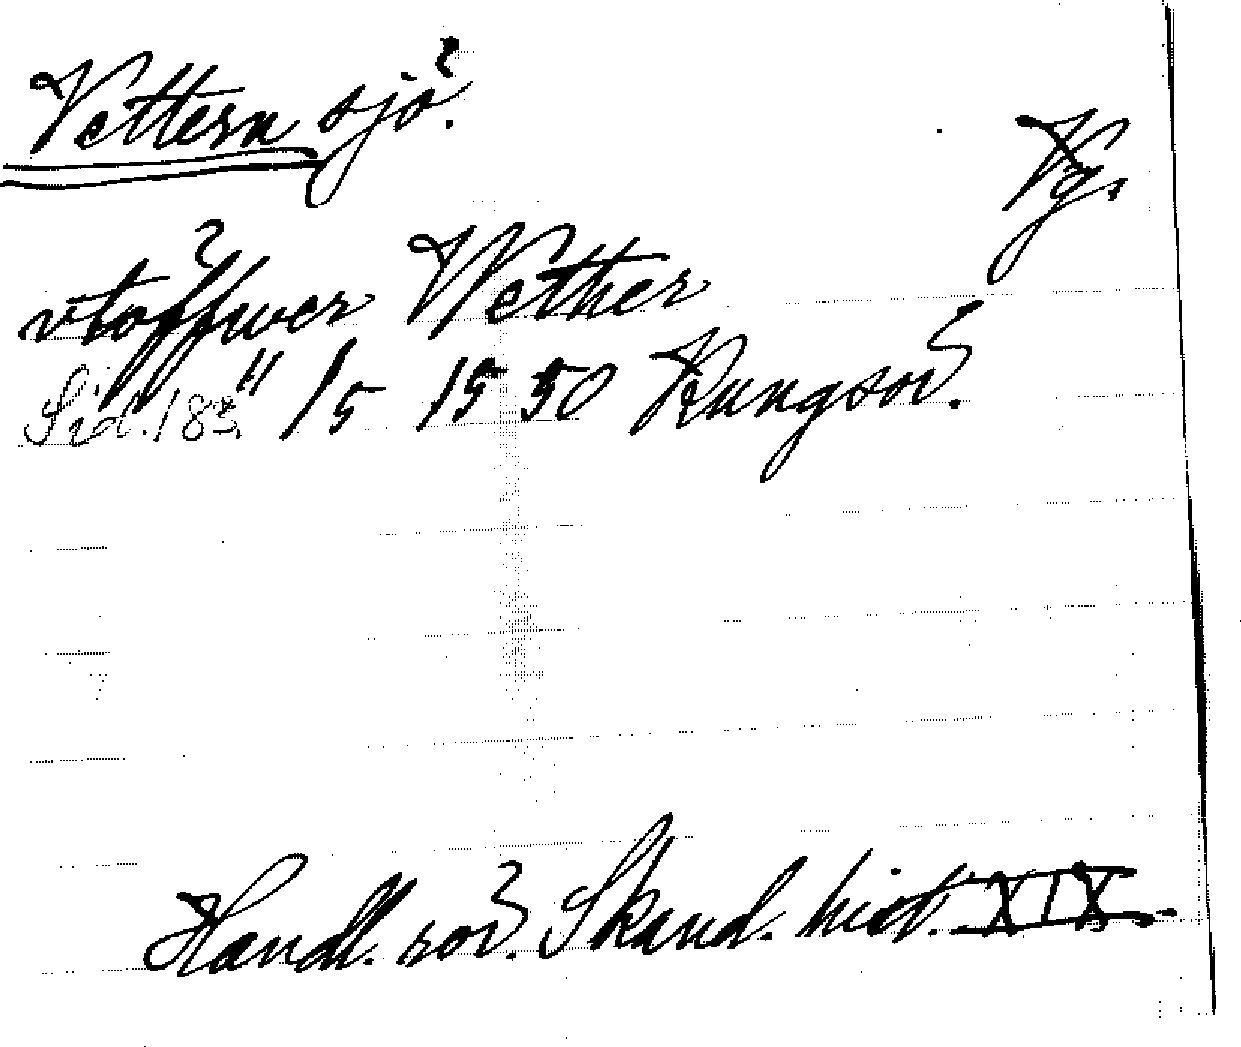 Vettern sjö.
Vg.
vtoffwer Wether
Sid. 183. " 1/5 1550 Kungsör.
Handl. rör. Skand. hist. XIX.